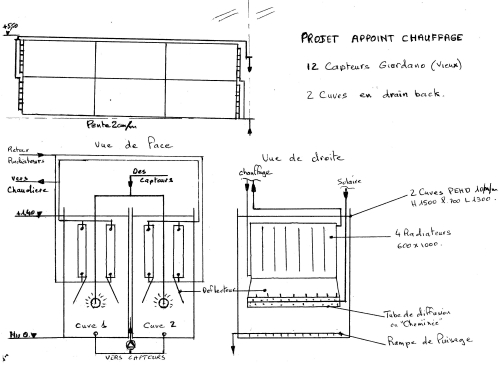 PROJET APPOINT CHAUFFAGE
+550
12 Capteurs Giordano (Vieux)
2 Cuves en drain back.
Pente 2cm/m
Vue de face
Vue de droite
Retour
Radiateurs
Vers
Chaudiere
Des
Capteurs
chauffage
Solaire
2 Cuves PEHD 10m/m
H 1500 l.700 L 1300.
+140
4 Radiateurs
600 x 1000.
Deflecteur
Cuve 1
Cuve 2
Tube de diffusion
en "Cheminée"
Niv 0.
Rampe de Puisage
VERS CAPTEURS